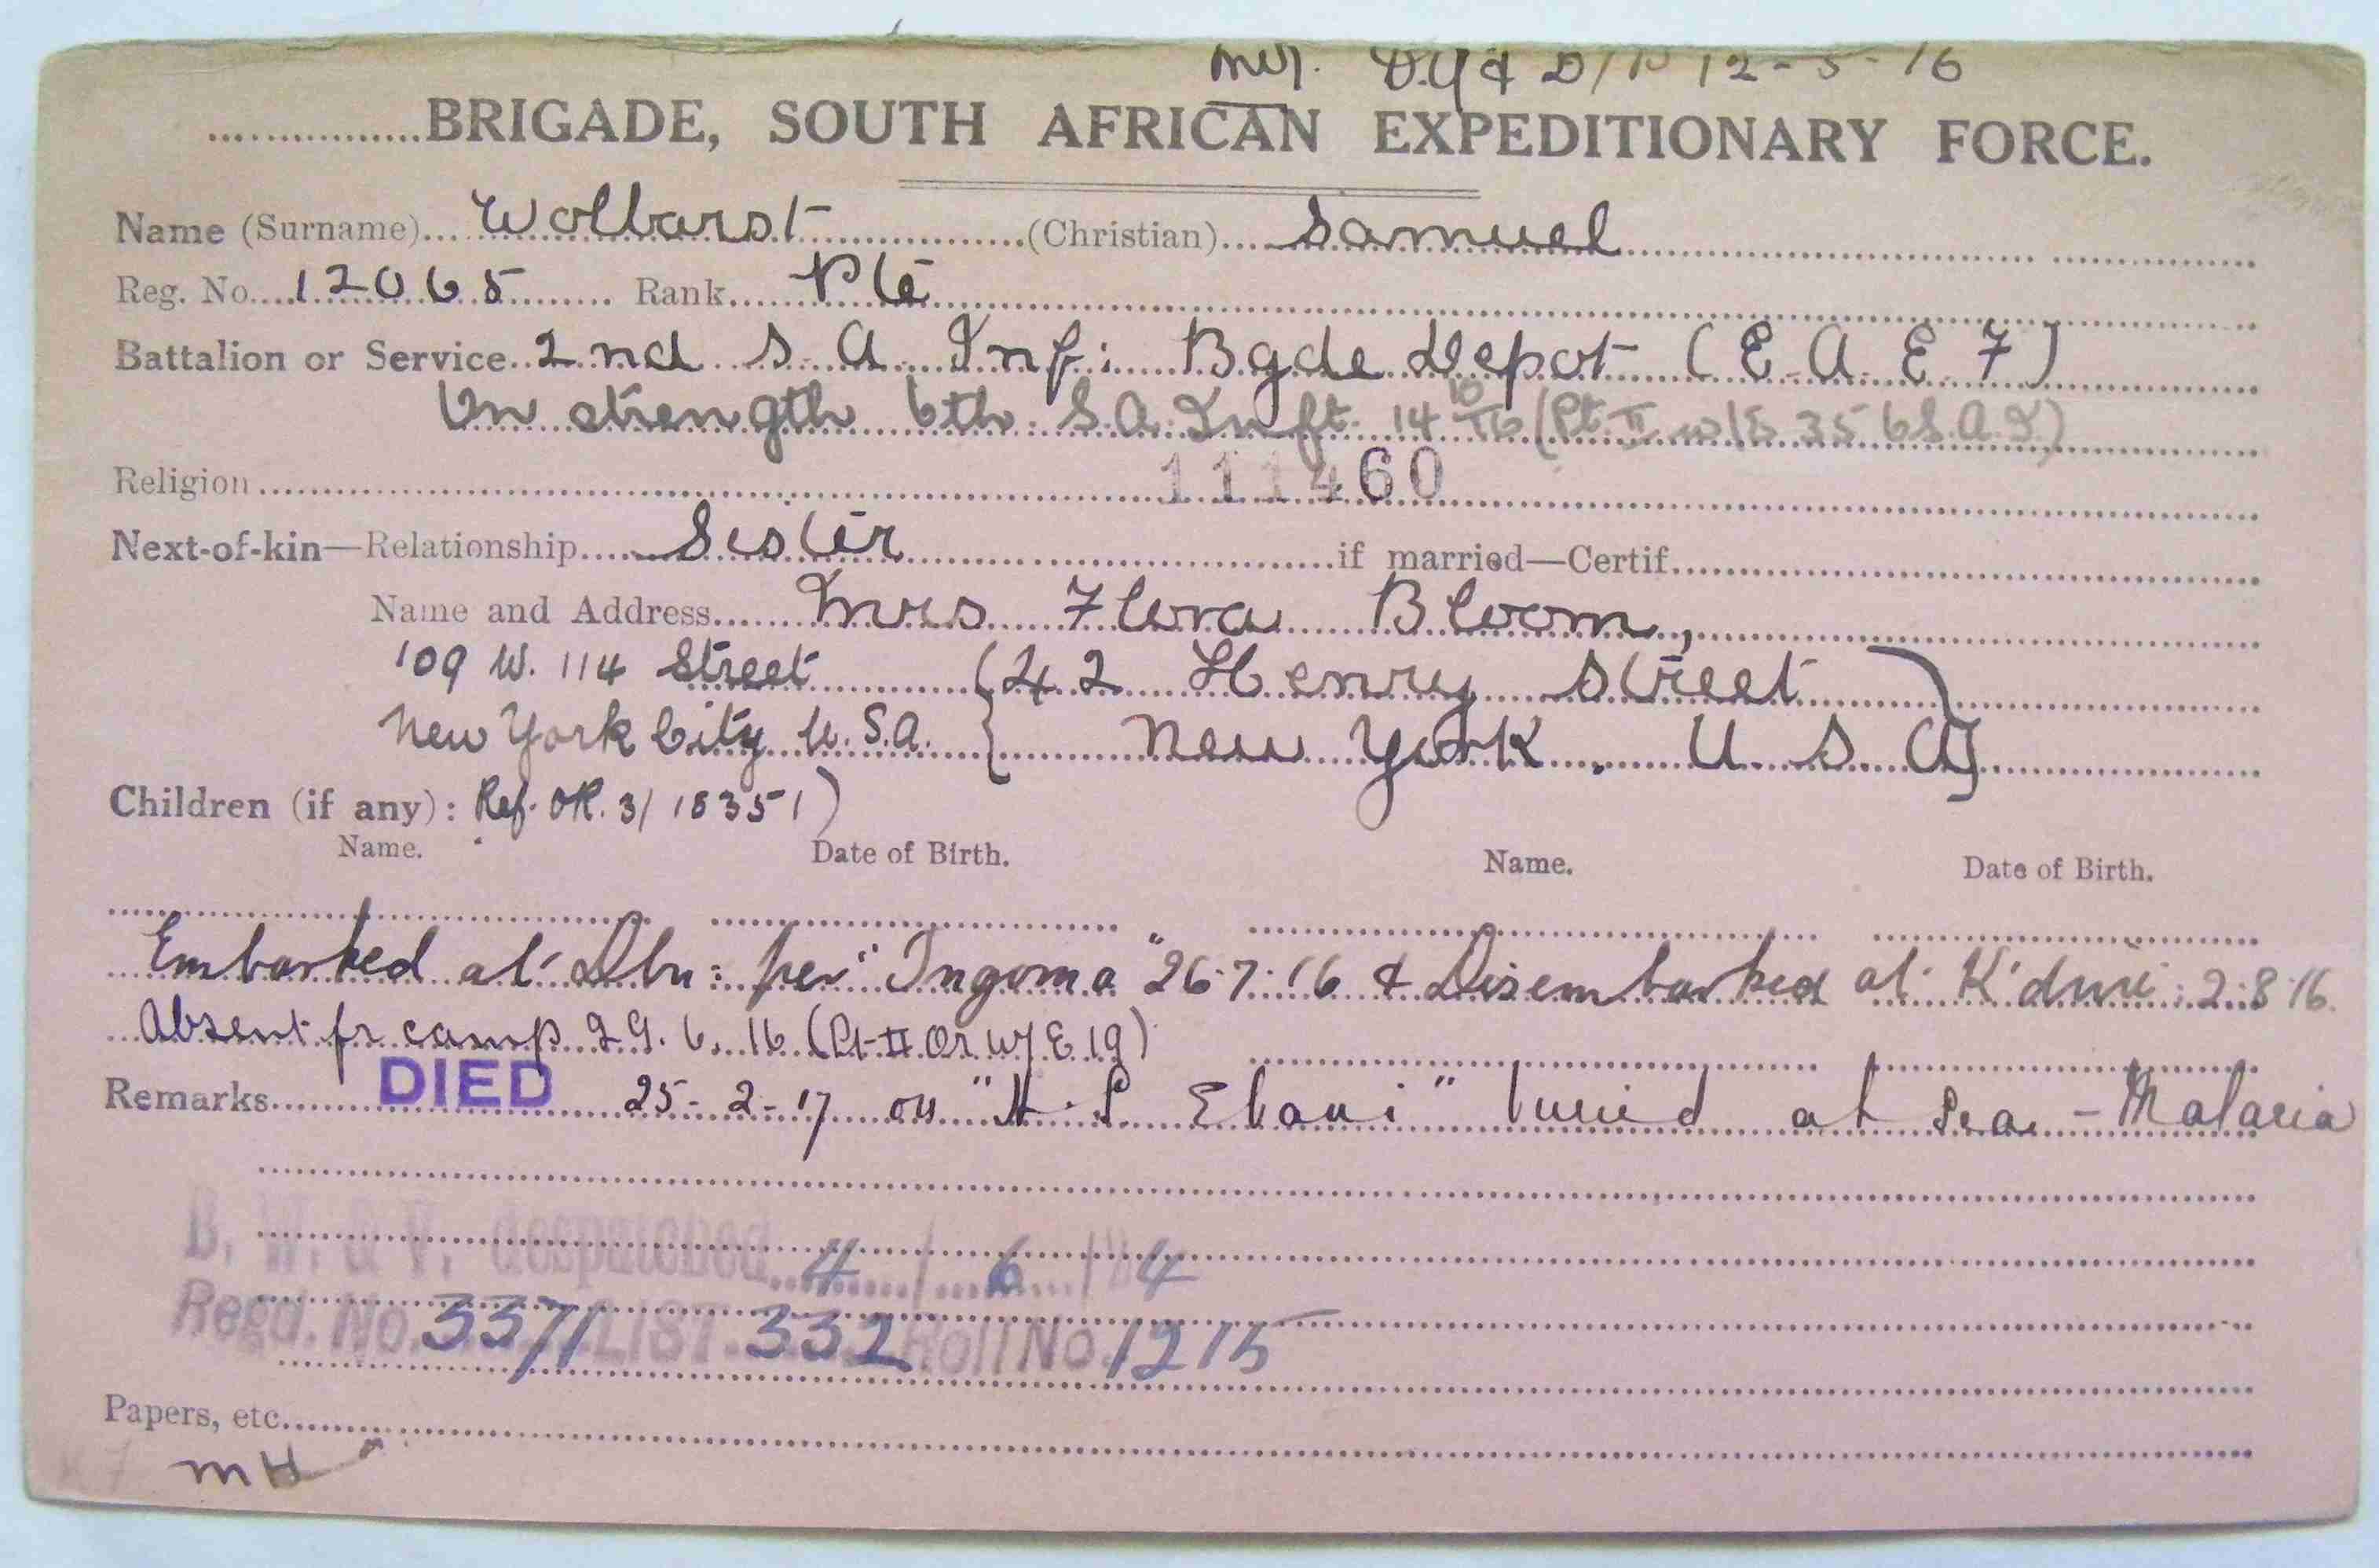 12-5-16
BRIGADE, SOUTH AFRICAN EXPEDITIONARY FORCE.
Name (Surname) Wolbarst (Christian) Samuel
Reg. No. 12065 Rank Pte
Battalion or Service 2nd S. A. Inf: Bgde Depot (E. A. E. F)
On strength 6th S.A. Inft. 14/10/16 (Pt. II 35 6 S.A.I)
Religion 111460
Next-of-kin—Relationship Sister if married—Certif.
Name and Address Mrs Flora Bloom,
109 W. 114 Street (42 Henry Street
New York City U.S.A. New York. U. S. A)
Children (if any): Ref. OR. 3/18351)
Name. Date of Birth. Name. Date of Birth.
Embarked at Dbn: per "Ingoma" 26.7.16 & Disembarked at K'dini: 2.8.16.
Absent fr camp 29.6.16 (Pt II Or W/E 19)
Remarks DIED 25-2-17 on "H.S. Ebani" buried at Sea - Malaria
B. W. & V. despatched 4/6/24
Regd. No. 3371 LIST 332 Roll No. 1215
Papers, etc.